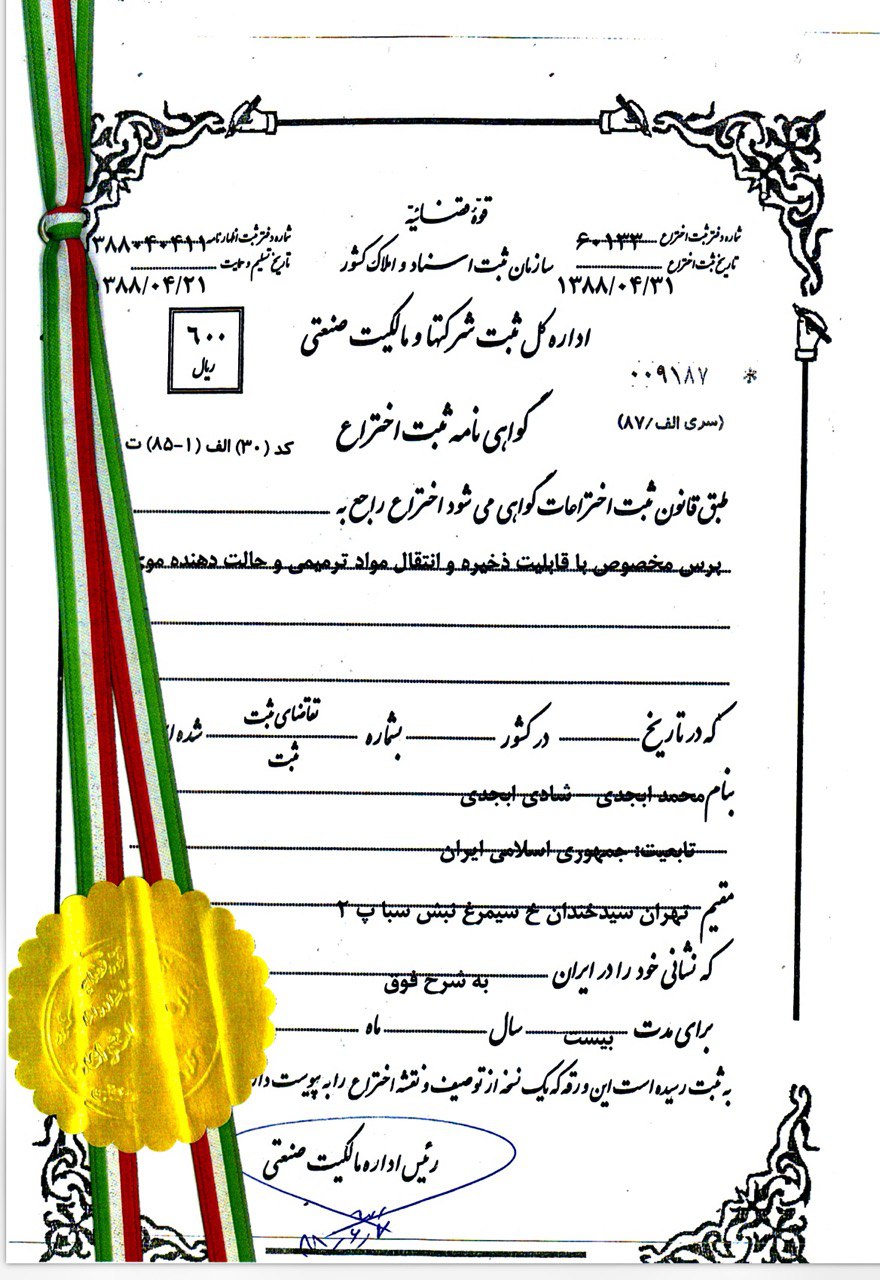 قوهٔ قضائیه
شماره دفتر ثبت اختراع ۶۰۱۳۳
شماره دفتر ثبت اظهارنامه ۳۸۸۰۴۰۴۱۱
سازمان ثبت اسناد و املاک کشور
تاریخ ثبت اختراع
۱۳۸۸/۰۴/۳۱
تاریخ تسلیم و حمایت
۱۳۸۸/۰۴/۲۱
اداره کل ثبت شرکتها و مالکیت صنعتی
۶۰۰
ریال
۰۰۹۱۸۷ *
(سری الف/۸۷)
گواهی نامه ثبت اختراع
کد (۳۰) الف (۱-۸۵) ت
طبق قانون ثبت اختراعات گواهی می شود اختراع راجع به
برس مخصوص با قابلیت ذخیره و انتقال مواد ترمیمی و حالت دهنده
که در تاریخ در کشور بشماره تقاضای ثبت
ثبت شده
بنام محمد ابجدی - شادی ابجدی
تابعیت: جمهوری اسلامی ایران
مقیم تهران سیدخندان خ سیمرغ نبش سبا پ ۲
که نشانی خود را در ایران به شرح فوق
برای مدت بیست سال ماه
به ثبت رسیده است این ورقه که یک نسخه از توصیف و نقشه اختراع را به پیوست
رئیس اداره مالکیت صنعتی